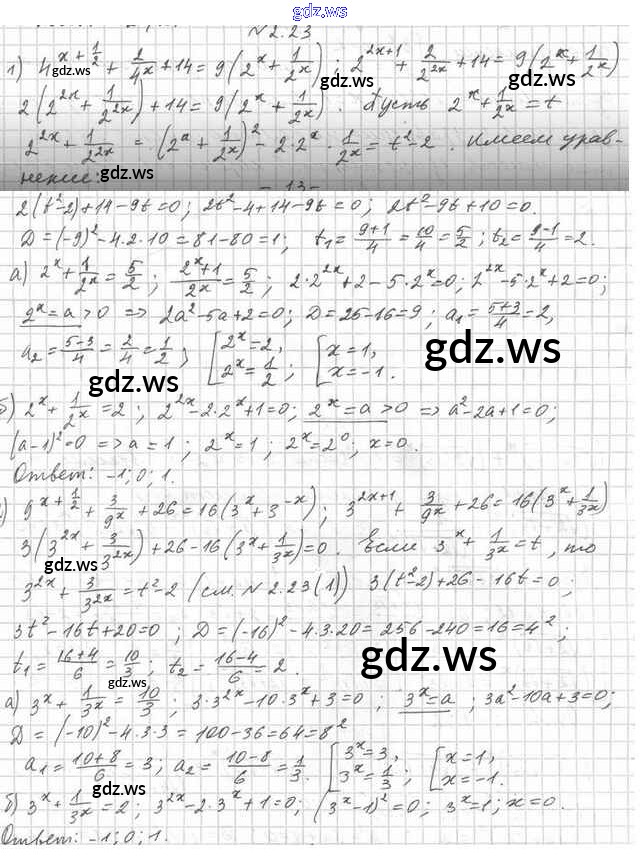 gdz.ws
N 2.23
1) 4^{x+\frac{1}{2}} + \frac{2}{4^x} + 14 = 9(2^x + \frac{1}{2^x}); 2^{2x+1} + \frac{2}{2^{2x}} + 14 = 9(2^x + \frac{1}{2^x})
gdz.ws gdz.ws
2(2^{2x} + \frac{1}{2^{2x}}) + 14 = 9(2^x + \frac{1}{2^x}). Пусть 2^x + \frac{1}{2^x} = t
2^{2x} + \frac{1}{2^{2x}} = (2^x + \frac{1}{2^x})^2 - 2·2^x·\frac{1}{2^x} = t^2 - 2. Имеем урав-
нение: gdz.ws
- 13 -
2(t^2-2)+14-9t=0; 2t^2-4+14-9t=0; 2t^2-9t+10=0.
D=(-9)^2-4·2·10=81-80=1; t_1=\frac{9+1}{4}=\frac{10}{4}=\frac{5}{2}; t_2=\frac{9-1}{4}=2.
а) 2^x+\frac{1}{2^x}=\frac{5}{2}; \frac{2^x+1}{2^x}=\frac{5}{2}; 2·2^{2x}+2-5·2^x=0; 2^{2x}-5·2^x+2=0;
2^x=a>0 => 2a^2-5a+2=0; D=25-16=9; a_1=\frac{5+3}{4}=2,
a_2=\frac{5-3}{4}=\frac{2}{4}=\frac{1}{2}; [2^x=2, 2^x=\frac{1}{2}; [x=1, x=-1.
gdz.ws gdz.ws
б) 2^x+\frac{1}{2^x}=2; 2^{2x}-2·2^x+1=0; 2^x=a>0 => a^2-2a+1=0;
(a-1)^2=0 => a=1; 2^x=1; 2^x=2^0; x=0.
Ответ: -1; 0; 1. gdz.ws
) 9^{x+\frac{1}{2}}+\frac{3}{9^x}+26=16(3^x+3^{-x}); 3^{2x+1}+\frac{3}{9^x}+26=16(3^x+\frac{1}{3^x})
3(3^{2x}+\frac{3}{3^{2x}})+26-16(3^x+\frac{1}{3^x})=0. Если 3^x+\frac{1}{3^x}=t, то
gdz.ws
3^{2x}+\frac{3}{3^{2x}}=t^2-2 (см. N 2.23(1)) 3(t^2-2)+26-16t=0;
3t^2-16t+20=0; D=(-16)^2-4·3·20=256-240=16=4^2;
t_1=\frac{16+4}{6}=\frac{10}{3}; t_2=\frac{16-4}{6}=2. gdz.ws
gdz.ws
а) 3^x+\frac{1}{3^x}=\frac{10}{3}; 3·3^{2x}-10·3^x+3=0; 3^x=a; 3a^2-10a+3=0;
D=(-10)^2-4·3·3=100-36=64=8^2
a_1=\frac{10+8}{6}=3; a_2=\frac{10-8}{6}=\frac{1}{3}. [3^x=3, 3^x=\frac{1}{3}; [x=1, x=-1.
б) 3^x+\frac{1}{3^x}=2; 3^{2x}-2·3^x+1=0; (3^x-1)^2=0; 3^x=1; x=0.
Ответ: -1; 0; 1. gdz.ws gdz.ws